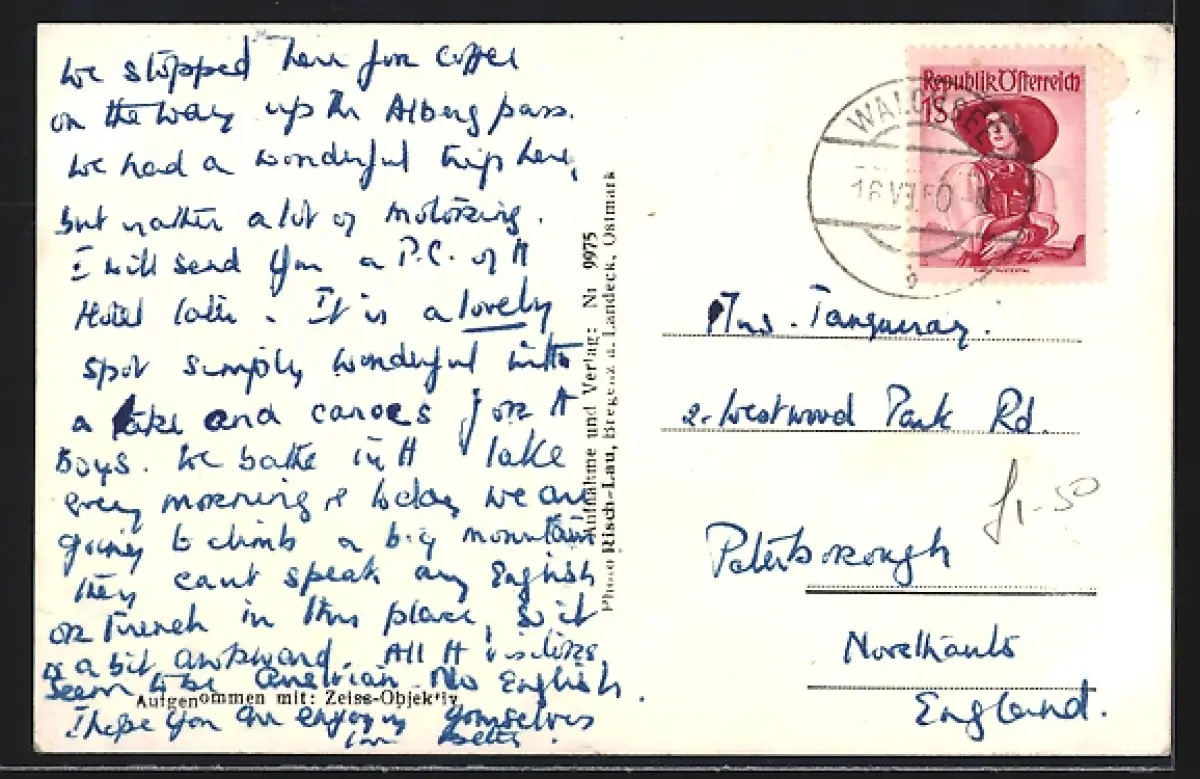 We stopped here for coffee
on the way up the Alberg pass.
We had a wonderful trip here,
but rather a lot of motoring.
I will send you a P.C. of the
Hotel later. It is a lovely
spot simply wonderful with
a lake and canoes for the
boys. We bathe in the lake
every morning & today we are
going to climb a big mountain
They cant speak any English
or French in this place, so it
is a bit awkward. All the visitors
seem to be Austrian No English.
I hope you are enjoying yourselves
Aufgenommen mit: Zeiss-Objektiv
Aufnahme und Verlag: Nr 9975
Photo Risch-Lau, Bregenz u. Landeck, Ostmark
Republik Österreich
1S
16.VI.50
b
Mrs. Tanqueray.
2. Westwood Park Rd.
£1-50
Peterborough
Northants
England.